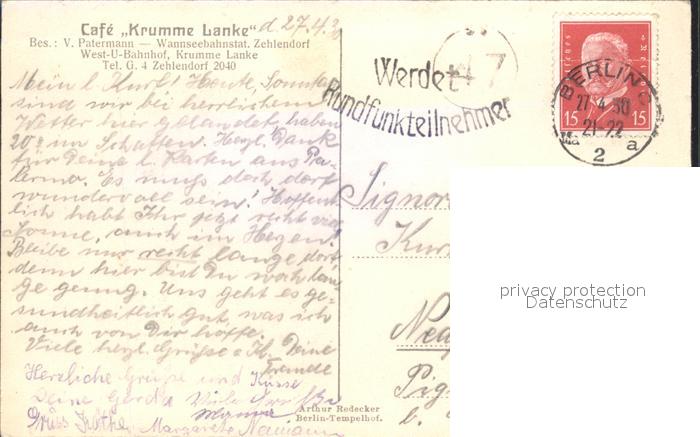 Café „Krumme Lanke"
d. 27.4.
Bes.: V. Patermann — Wannseebahnstat. Zehlendorf
West-U-Bahnhof, Krumme Lanke
Tel. G. 4 Zehlendorf 2040
Mein l. Kurt! Heute, Sonntag
sind wir bei herrlichem
Wetter hier gelandet, haben
20° im Schatten. Herzl. Dank
für Deine l. Karten aus Pa-
lermo. Es muß doch dort
wundervoll sein! Hoffent-
lich habt Ihr jetzt recht viel
Sonne, auch im Herzen!
Bleibe nur recht lange dort,
denn hier bist Du noch lan-
ge genug. Uns geht es ge-
sundheitlich gut, was ich
auch von Dir hoffe.
Viele herzl. Grüße Deine
Herzliche Grüße und Küsse
Deine Gerda Viele
Gruss Käthe Margarete Neumann
Werdet
Rundfunkteilnehmer
7
15 15
BERLIN
27.4.30
21-22
a
2
Signor
Kur
Nea
Pig
Arthur Redecker
Berlin-Tempelhof.
privacy protection
Datenschutz